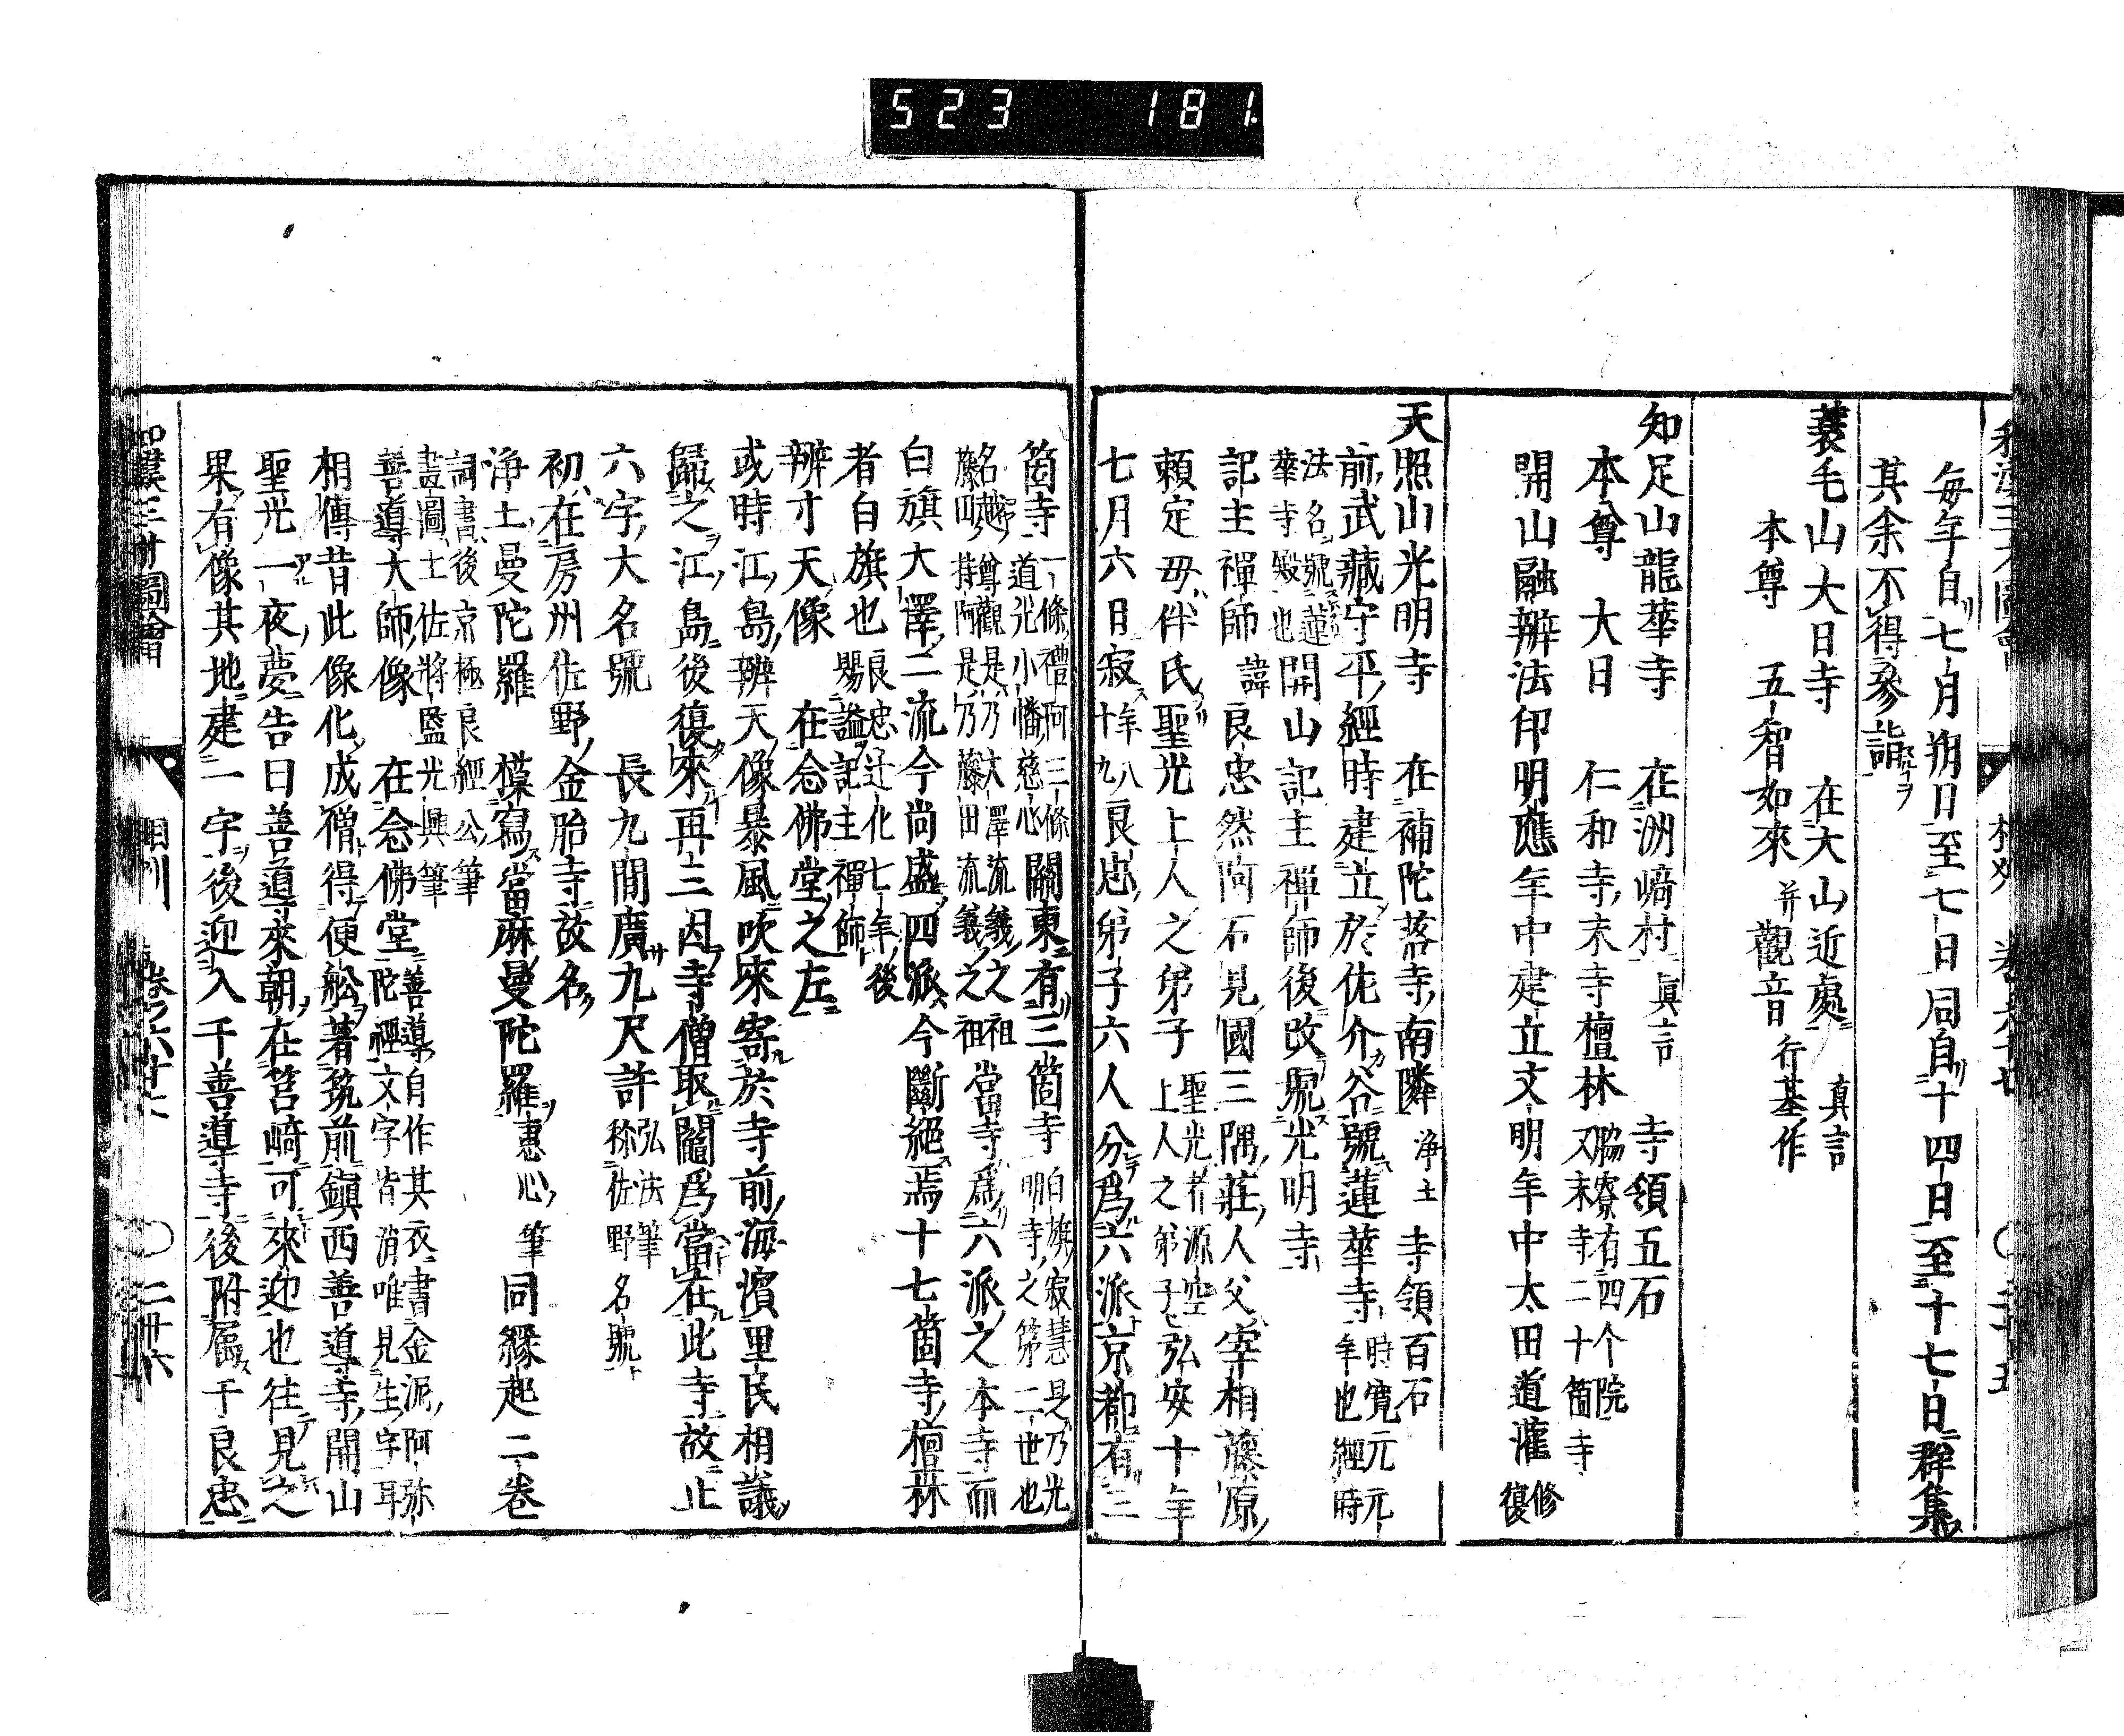 523 181
每年自七月朔日至七日同自十四日至十七日群集
其余不得參詣
蓑毛山大日寺 在大山近處 真言
本尊 五智如來 并觀音 行基作
知足山龍華寺 在洲﨑村 眞言 寺領五石
本尊 大日 仁和寺末寺檀林 脇寮有四个院
又末寺二十箇寺
開山融辨法印明應年中建立文明年中太田道灌 修
復
天照山光明寺 在補陀落寺南隣 浄土 寺領百石
前武藏守平經時建立於佐介谷號蓮華寺 時寛元元
年也經時
法名號蓮
華寺殿也 開山記主禪師後改號光明寺
記主禪師 諱良忠然阿石見國三隅莊人父宰相藤原
賴定母伴氏聖光上人之弟子 聖光者源空
上人之弟子 弘安十年
七月六日寂 年八
十九 良忠弟子六人分爲六派京都有三
箇寺 一條禮阿三條
道光小幡慈心 關東有三箇寺 白旗寂慧是乃光
明寺之第二世也
名越尊觀是乃大澤流義之祖
藤田持阿是乃藤田流義之祖 當寺爲六派之本寺而
白旗大澤二流今尚盛四派今斷絕焉十七箇寺檀林
者白旗也 良忠辻化七年後
賜謚記主禪師
辨才天像 在念佛堂之左
或時江島辨天像暴風吹來寄於寺前海濱里民相議
歸之江島後復來再三因寺僧取䦰爲當在此寺故止
六字大名號 長九間廣九尺許 弘法筆
称佐野名號
初在房州佐野金胎寺故名
浄土曼陀羅 摸寫當麻曼陀羅 惠心筆 同緣起二卷
詞書後京極良經公筆
畫圖土佐將監光興筆
善導大師像 在念佛堂 善導自作其衣書金泥阿弥
陀經文字皆消唯見生字耳
相傳昔此像化成僧得便舩著筑前鎭西善導寺開山
聖光一夜夢告曰善導來朝在筥﨑可來迎也往見之
果有像其地建一宇後迎入千善導寺後附屬千良忠
相州 卷之六十七 〇二卅六